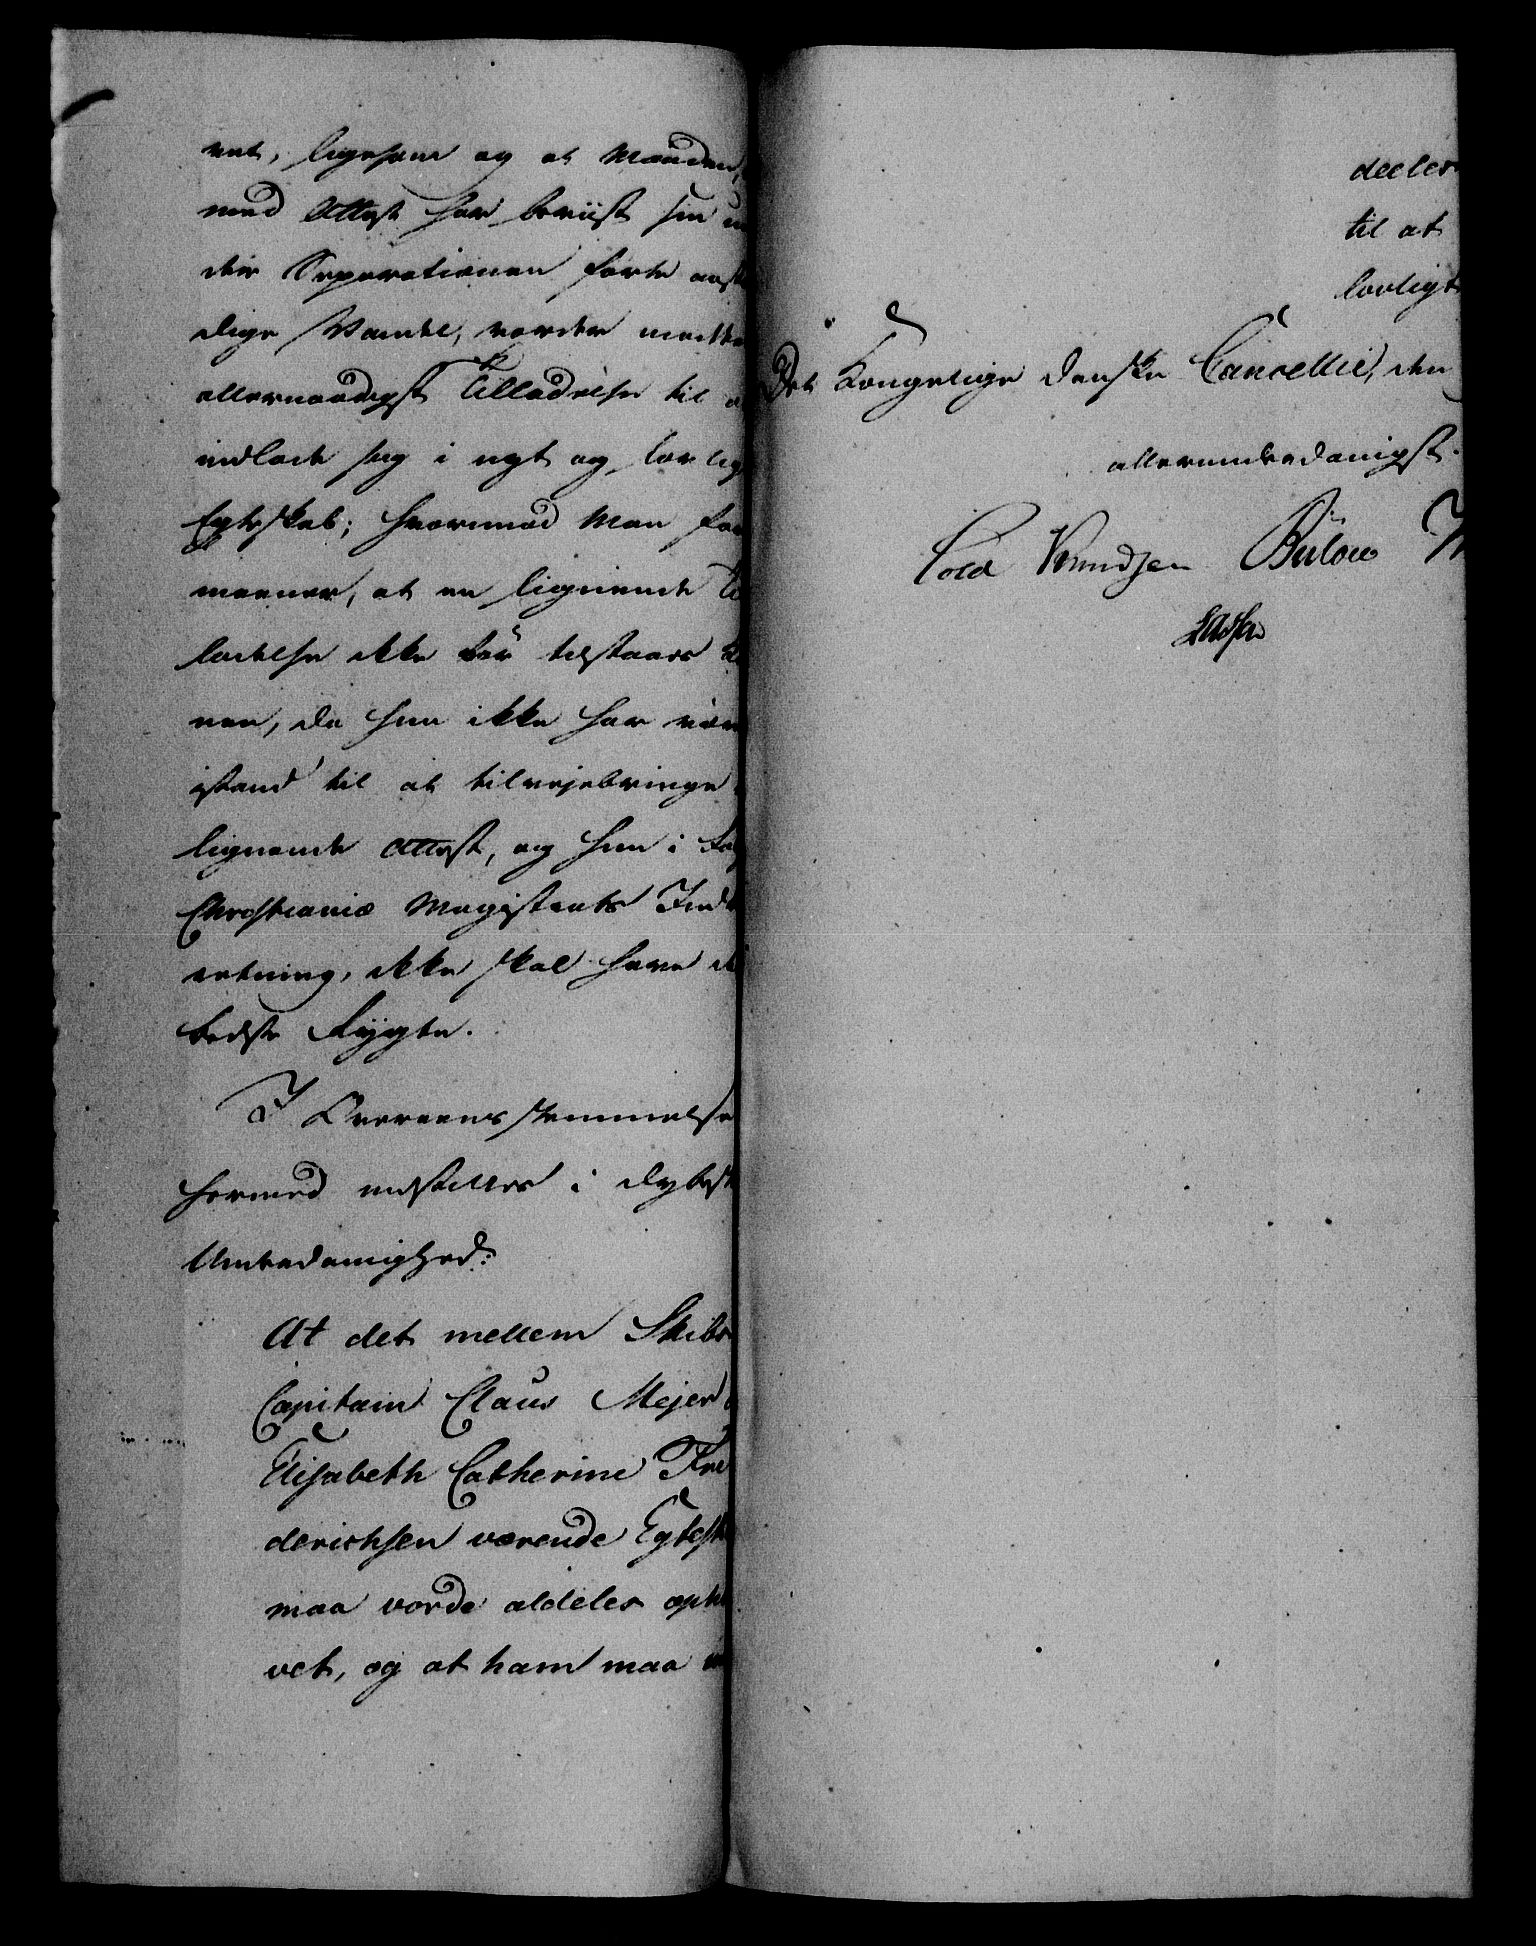 vet, ligesom og at Manden,
med Attest har beviist sin un
der Separationen førte anstæn
dige Vandel, vorder meddeelt
allernaadigst Tilladelse til at
indlade sig i nyt og lovligt
Egteskab; hvorimod Man for
meener, at en lignende Til
ladelse ikke bør tilstaaes Ko
nen, da hun ikke har været
istand til at tilvejebringe
lignende Attest, og hun i Følge
Christianiæ Magistrats Indbe
retning, ikke skal have det
bedste Rygte.
I Overeensstemmelse
hermed indstilles i dybeste
Underdanighed:
At det mellem Skibs
Capitain Claus Mejer
Elisabeth Catherine Fri
derichsen værende Egtesk
maa vorde aldeles ophæ
vet, og at ham maa
deeles
til at
lovligt
Det Kongelige danske Cancellie, den
allerunderdanigst.
Cold Knudsen Bülow
Lassen